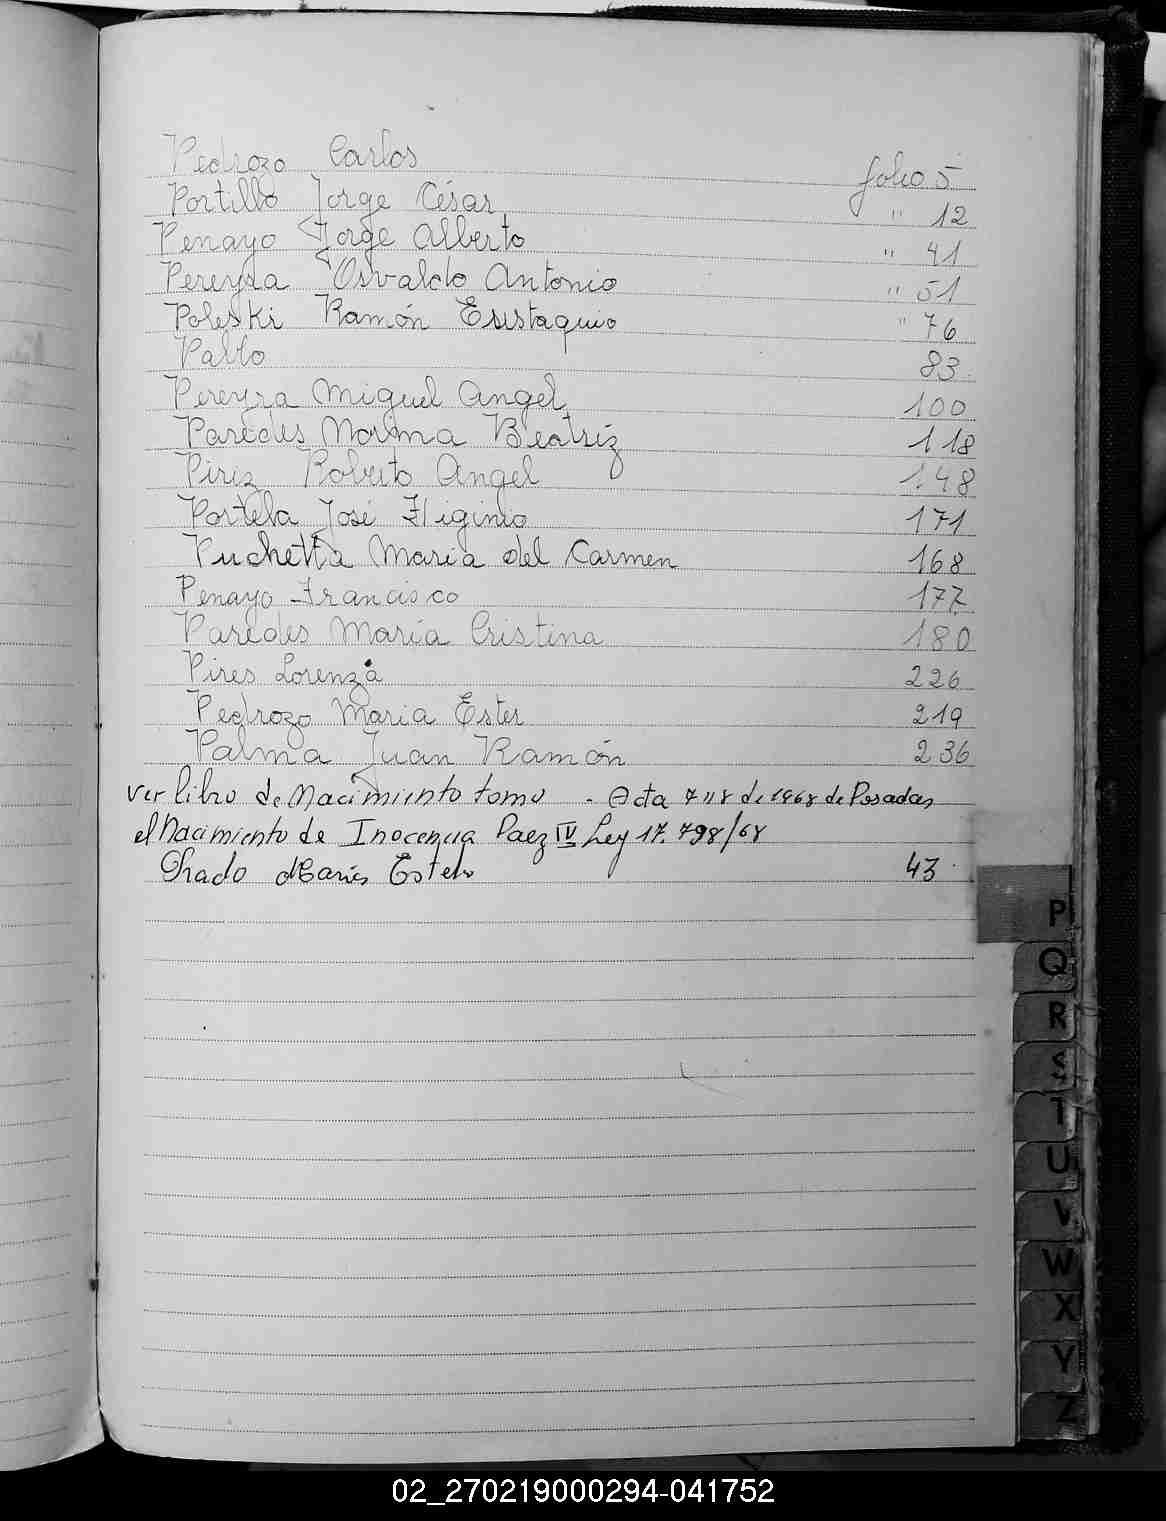 Pedrozo Carlos folio 5
Portillo Jorge César " 12
Penayo Jorge Alberto " 41
Pereyra Osvaldo Antonio " 51
Poleski Ramón Eustaquio " 76
Pablo 83
Pereyra Miguel Angel 100
Paredes Norma Beatríz 118
Piriz Roberto Angel 148
Portela José Higinio 171
Puchetta Maria del Carmen 168
Penayo Francisco 177
Paredes María Cristina 180
Pires Lorenza 226
Pedrozo Maria Ester 219
Palma Juan Ramón 236
Ver libro de Nacimiento tomo - Acta 7118 de 1968 de Posadas
el Nacimiento de Inocencia Paez IV Ley 17.798/68
Prado María Estela 43
P
Q
R
S
T
U
V
W
X
Y
Z
02_270219000294-041752